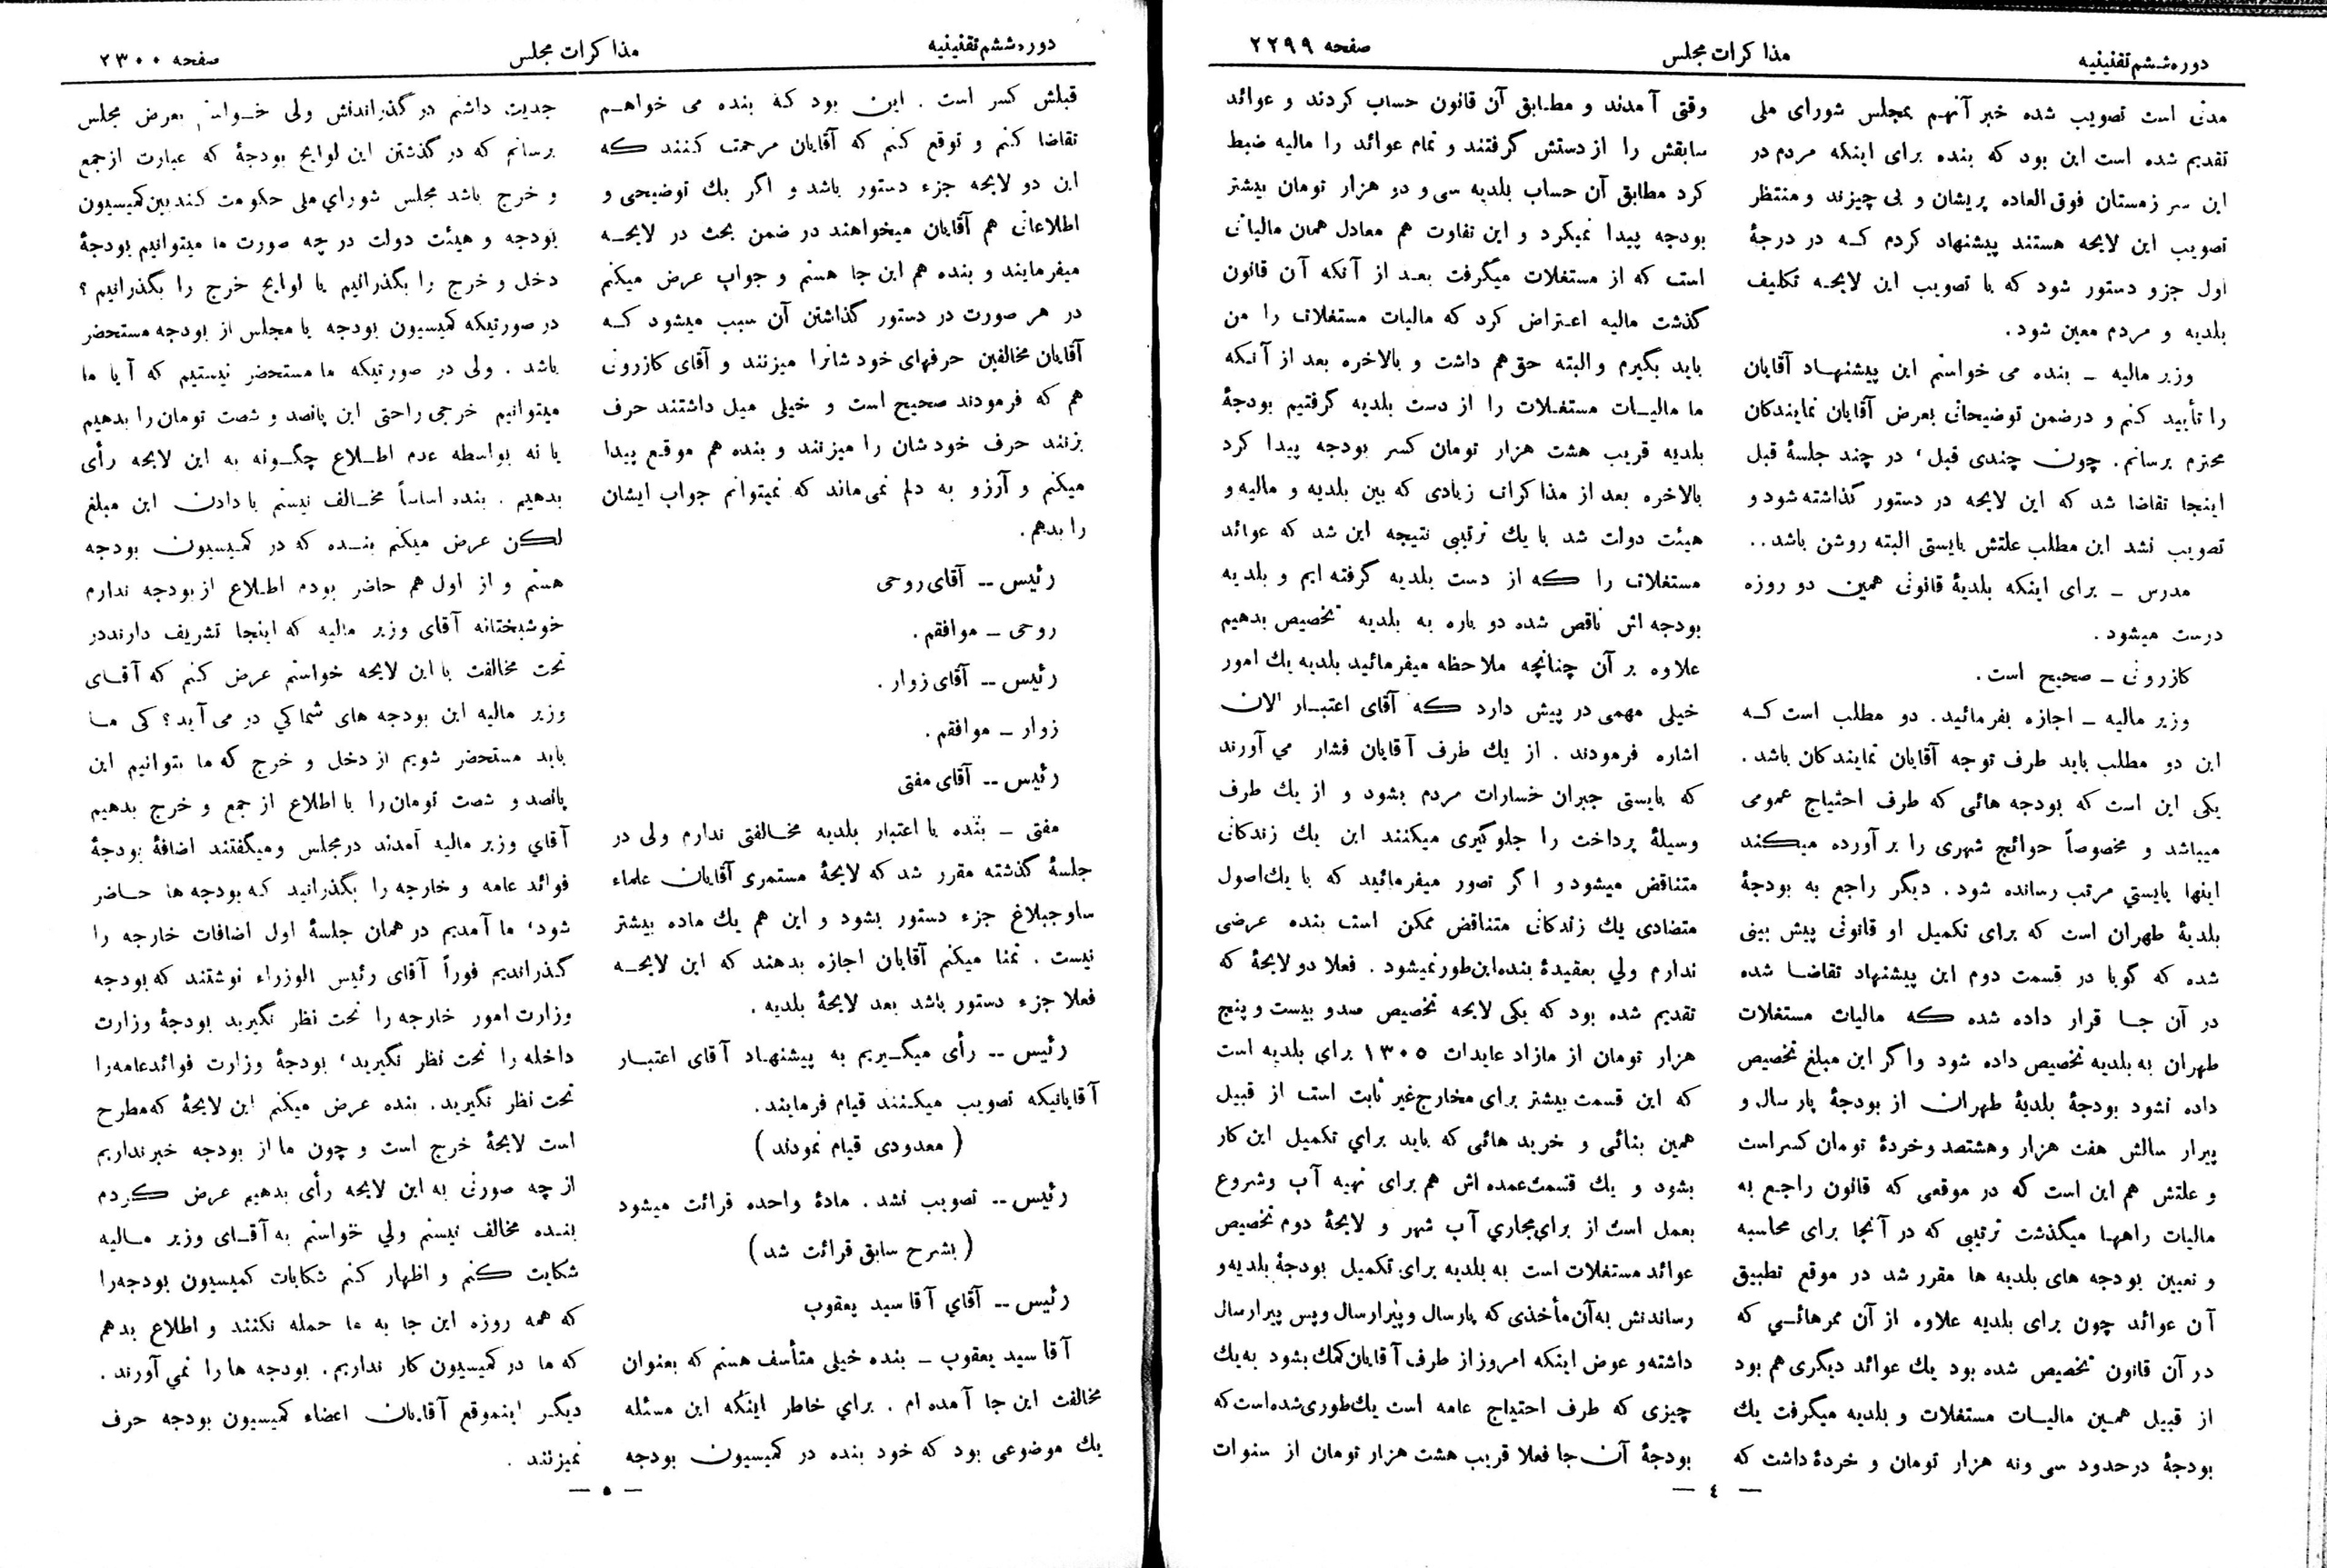 دوره‌ششم تقنینیه
مذاکرات مجلس
صفحه ۲۲۹۹
مدتی است تصویب شده خبر آنهم بمجلس شورای ملی
تقدیم شده است این بود که بنده برای اینکه مردم در
این سر زمستان فوق العاده پریشان و بی چیزند و منتظر
تصویب این لایحه هستند پیشنهاد کردم کـه در درجهٔ
اول جزو دستور شود که با تصویب این لایحـه تکلیف
بلدیه و مردم معین شود.
وزیر مالیه ـ بنده می خواستم این پیشنهـاد آقایان
را تأیید کنم و درضمن توضیحاتی بعرض آقایان نمایندکان
محترم برسانم. چون چندی قبل، در چند جلسهٔ قبل
اینجا تقاضا شد که این لایحه در دستور گذاشته شود و
تصویب نشد این مطلب علتش بایستی البته روشن باشد..
مدرس ـ برای اینکه بلدیهٔ قانونی همین دو روزه
درست میشود.
کازرونی ـ صحیح است.
وزیر مالیه ـ اجازه بفرمائید. دو مطلب است کـه
این دو مطلب باید طرف توجه آقایان نمایندکان باشد.
یکی این است که بودجه هائی که طرف احتیاج عمومی
میباشد و مخصوصاً حوائج شهری را بر آورده میکند
اینها بایستي مرتب رسانده شود. دیگر راجع به بودجهٔ
بلدیهٔ طهران است که برای تکمیل او قانونی پیش بینی
شده که گویا در قسمت دوم این پیشنهاد تقاضـا شده
در آن جـا قرار داده شده که مالیات مستغلات
طهران به بلدیه تخصیص داده شود و اگر این مبلغ تخصیص
داده نشود بودجهٔ بلدیهٔ طهران از بودجهٔ پار سال و
پیرار سالش هفت هزار و هشتصد و خردهٔ تومان کسر است
و علتش هم این است که در موقعی که قانون راجع به
مالیات راههـا میگذشت ترتیبی که در آنجا برای محاسبه
و تعیین بودجه های بلدیه ها مقرر شد در موقع تطبیق
آن عوائد چون برای بلدیه علاوه از آن ممرهائـی که
در آن قانون تخصیص شده بود یك عوائد دیگری هم بود
از قبیل همـین مالیـات مستغلات و بلدیه میگرفت یك
بودجهٔ درحدود سی ونه هزار تومان و خردهٔ داشت که
وقتی آمدند و مطابق آن قانون حساب کردند و عوائد
سابقش را از دستش گرفتند و تمام عوائد را مالیه ضبط
کرد مطابق آن حساب بلدیه سی و دو هزار تومان بیشتر
بودجه پیدا نمیکرد و این تفاوت هم معادل همان مالیاتی
است که از مستغلات میگرفت بعـد از آنکه آن قانون
گذشت مالیه اعـتراض کرد که مالیات مستغلات را من
باید بگیرم و البته حق هم داشت و بالاخره بعد از آنکه
ما مالیـات مستغـلات را از دست بلدیه گرفتیم بودجهٔ
بلدیه قریب هشت هزار تومان کسر بودجه پیدا کرد
بالاخره بعد از مذاکرات زیادی که بین بلدیه و مالیه و
هیئت دولت شد با یك ترتیبی نتیجه این شد که عوائد
مستغلات را که از دست بلدیه گرفته ایم و بلدیه
بودجه اش ناقص شده دو باره به بلدیه تخصیص بدهیم
علاوه بر آن چنانچه ملاحظه میفرمائید بلدیه یك امور
خیلی مهمی در پیش دارد که آقای اعتبـار الان
اشاره فرمودند. از یك طرف آقایان فشار می آورند
که بایستی جبران خسارات مردم بشود و از یك طرف
وسیلهٔ پرداخت را جلوگیری میکنند این یك زندکانی
متناقض میشود و اگر تصور میفرمائید که با یك اصول
متضادی یك زندکانی متناقض ممکن است بنده عرضی
ندارم ولي بعقیدهٔ بنده این طور نمیشود. فعلا دو لایحهٔ که
تقدیم شده بود که یکی لایحه تخصیص صد و بیست و پنج
هزار تومان از مازاد عایدات ۱۳۰۵ برای بلدیه است
که این قسمت بیشتر برای مخارج غیر ثابت است از قبیل
همین بنائی و خرید هائی که باید براي تکمیل این کار
بشود و یك قسمت عمده اش هم برای تهیه آب و شروع
بعمل است از برای مجاري آب شهر و لایحهٔ دوم تخصیص
عوائد مستغلات است به بلدیه برای تکمیل بودجهٔ بلدیه و
رساندنش به آن مأخذی که پارسال و پیرارسال و پس پیرارسال
داشته و عوض اینکه امروز از طرف آقایان کمك بشود به یك
چیزی که طرف احتیاج عامه است یك طوری شده است که
بودجهٔ آن جا فعلا قریب هشت هزار تومان از سنوات
— ٤ —
دوره‌ششم تقنینیه
مذاکرات مجلس
صفحه ۲۳۰۰
قبلش کسر است. این بود که بنده می خواهـم
تقاضا کنم و توقع کنم که آقایان مرحمت کنند که
این دو لایحه جزء دستور باشد و اگر یك توضیحی و
اطلاعاتی هم آقایان میخواهند در ضمن بحث در لایحـه
میفرمایند و بنده هم این جا هستم و جواب عرض میکنم
در هر صورت در دستور گذاشتن آن سبب میشود کـه
آقایان مخالفین حرفهای خود شانرا میزنند و آقای کازرونی
هم که فرمودند صحیح است و خیلی میل داشتند حرف
بزنند حرف خودشان را میزنند و بنده هم موقع پیدا
میکنم و آرزو به دلم نمی ماند که نمیتوانم جواب ایشان
را بدهم.
رئیس -- آقای روحی
روحی ـ موافقم.
رئیس -- آقای زوار.
زوار ـ موافقم.
رئیس -- آقای مفتی
مفتی ـ بنده با اعتبار بلدیه مخـالفتی ندارم ولی در
جلسهٔ گذشته مقرر شد که لایحهٔ مستمری آقایان علماء
ساوجبلاغ جزء دستور بشود و این هم یك ماده بیشتر
نیست. تمنا میکنم آقایان اجازه بدهند که این لایحـه
فعلا جزء دستور باشد بعد لایحهٔ بلدیه.
رئیس -- رأی میگـیریم به پیشنهـاد آقای اعتبـار
آقایانیکه تصویب میکـنند قیام فرمایند.
(معدودی قیام نمودند)
رئیس -- تصویب نشد. مادهٔ واحده قرائت میشود
(بشرح سابق قرائت شد)
رئیس -- آقاي آقا سید یعقوب
آقا سید یعقوب ـ بنده خیلی متأسف هستم که بعنوان
مخالفت این جا آمده ام. براي خاطر اینکه این مسئله
یك موضوعی بود که خود بنده در کمیسیون بودجه
جدیت داشتم در گذراندنش ولی خـواستم بعرض مجلس
برسانم که در گذشتن این لوایح بودجهٔ که عبارت از جمع
و خرج باشد مجلس شوراي ملی حکومت کند بین کمیسیون
بودجه و هیئت دولت در چه صورت ما میتوانیم بودجهٔ
دخل و خرج را بگذرانیم یا لوایح خرج را بگذرانیم؟
در صورتیکه کمیسیون بودجه یا مجلس از بودجه مستحضر
باشد. ولی در صورتیکه ما مستحضر نیستیم که آیا ما
میتوانیم خرجی راحتی این پانصد و شصت تومان را بدهیم
یا نه بواسطه عدم اطـلاع چگـونه به این لایحه رأی
بدهیم. بنده اساساً مخـالف نیستم با دادن این مبلغ
لکن عرض میکنم بنـده که در کمیسیون بودجه
هستم و از اول هم حاضر بودم اطـلاع از بودجه ندارم
خوشبختانه آقای وزیر مالیه که اینجا تشریف دارند در
تحت مخالفت با این لایحه خواستم عرض کنم که آقـای
وزیر مالیه این بودجه های شما کي در می آید؟ کی مـا
باید مستحضر شویم از دخل و خرج که ما بتوانیم این
پانصد و شصت تومان را با اطلاع از جمع و خرج بدهیم
آقاي وزیر مالیه آمدند در مجلس و میگفتند اضافهٔ بودجهٔ
فوائد عامه و خارجه را بگذرانید که بودجه ها حـاضر
شود، ما آمدیم در همان جلسهٔ اول اضافات خارجه را
گذراندیم فوراً آقای رئیس الوزراء نوشتند که بودجه
وزارت امور خارجه را تحت نظر نگیرید بودجهٔ وزارت
داخله را تحت نظر نگیرید، بودجهٔ وزارت فوائد عامه را
تحت نظر نگیرید. بنده عرض میکنم این لایحهٔ که مطرح
است لایحهٔ خرج است و چون ما از بودجه خبر نداریم
از چه صورتی به این لایحه رأی بدهیم عرض کردم
بنـده مخالف نیستم ولي خواستم به آقـای وزیر مـالیه
شکایت کنم و اظهار کنم شکایات کمیسیون بودجه را
که همه روزه این جا به ما حمله نکنند و اطلاع بدهم
که ما در کمیسیون کار نداریم. بودجه ها را نمي آورند.
دیگـر اینموقع آقایان اعضاء کمیسیون بودجه حرف
نمیزنند.
— ٥ —